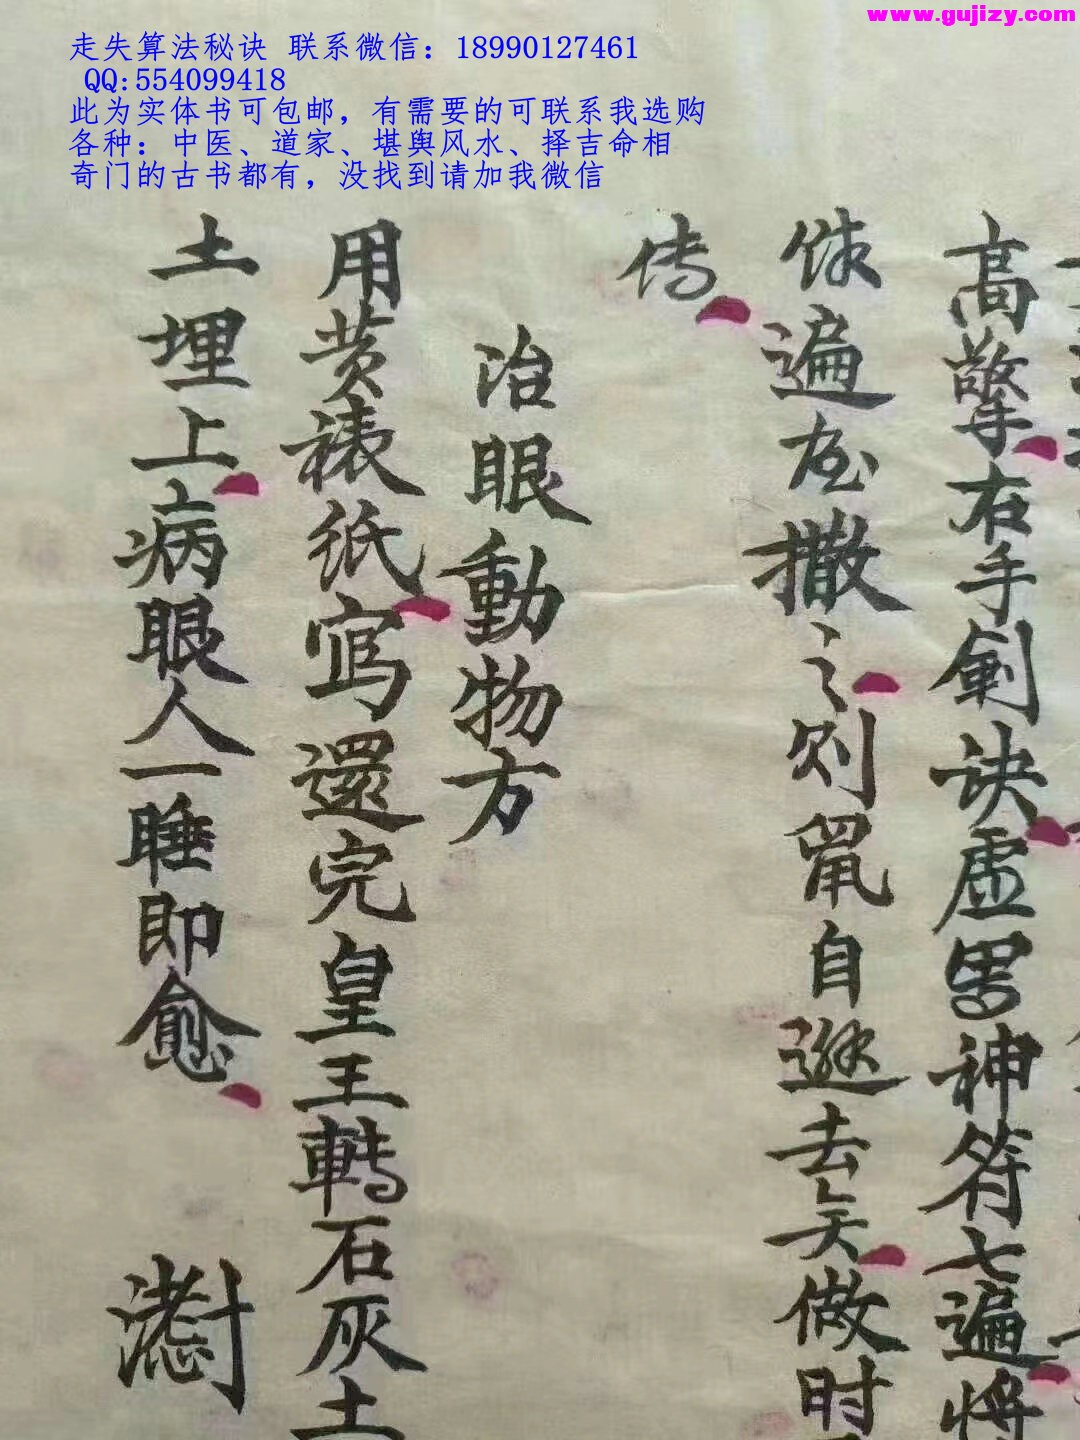 www.gujizy.com
走失算法秘诀 联系微信：18990127461
QQ:554099418
此为实体书可包邮，有需要的可联系我选购
各种：中医、道家、堪舆风水、择吉命相
奇门的古书都有，没找到请加我微信
高擎右手劍诀虚畨神符七遍将
遍 撒之则鼠自遯去矣做时
传
治眼動物方
用黄裱纸寫還完皇王轉石灰土
土埋上病眼人一睡即愈